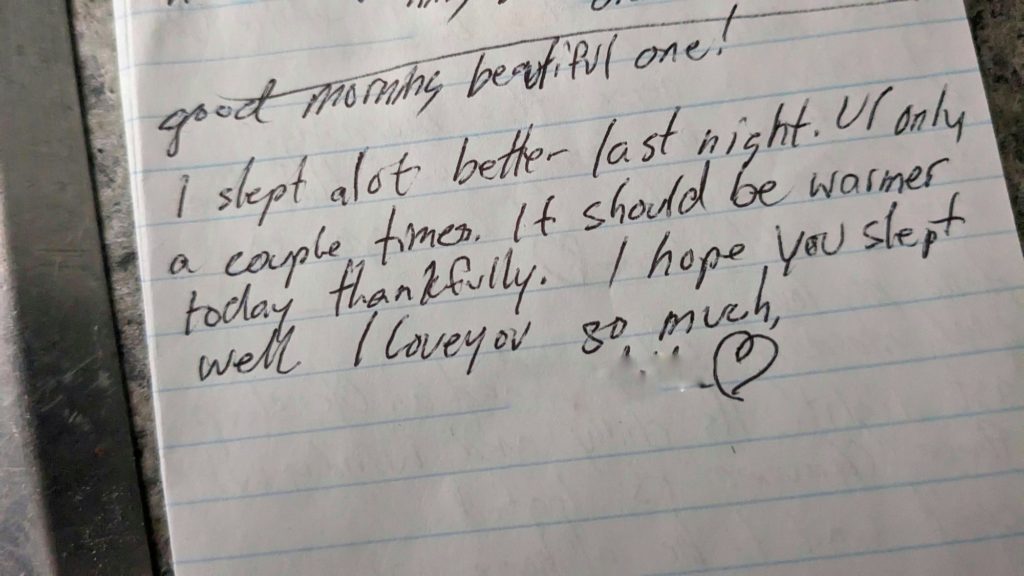 good morning beautiful one!
I slept alot better last night. Ur only
a couple times. It should be warmer
today thankfully. I hope you slept
well I love you so much,